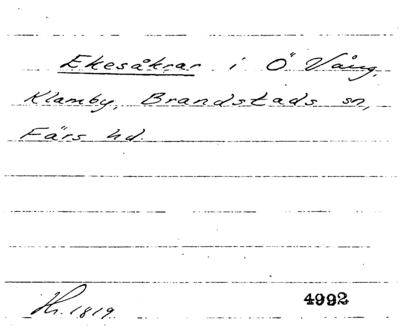 Ekesåkrar i Ö Vång,
Klamby, Brandstads sn,
Färs hd.
Hr. 1819.
4992